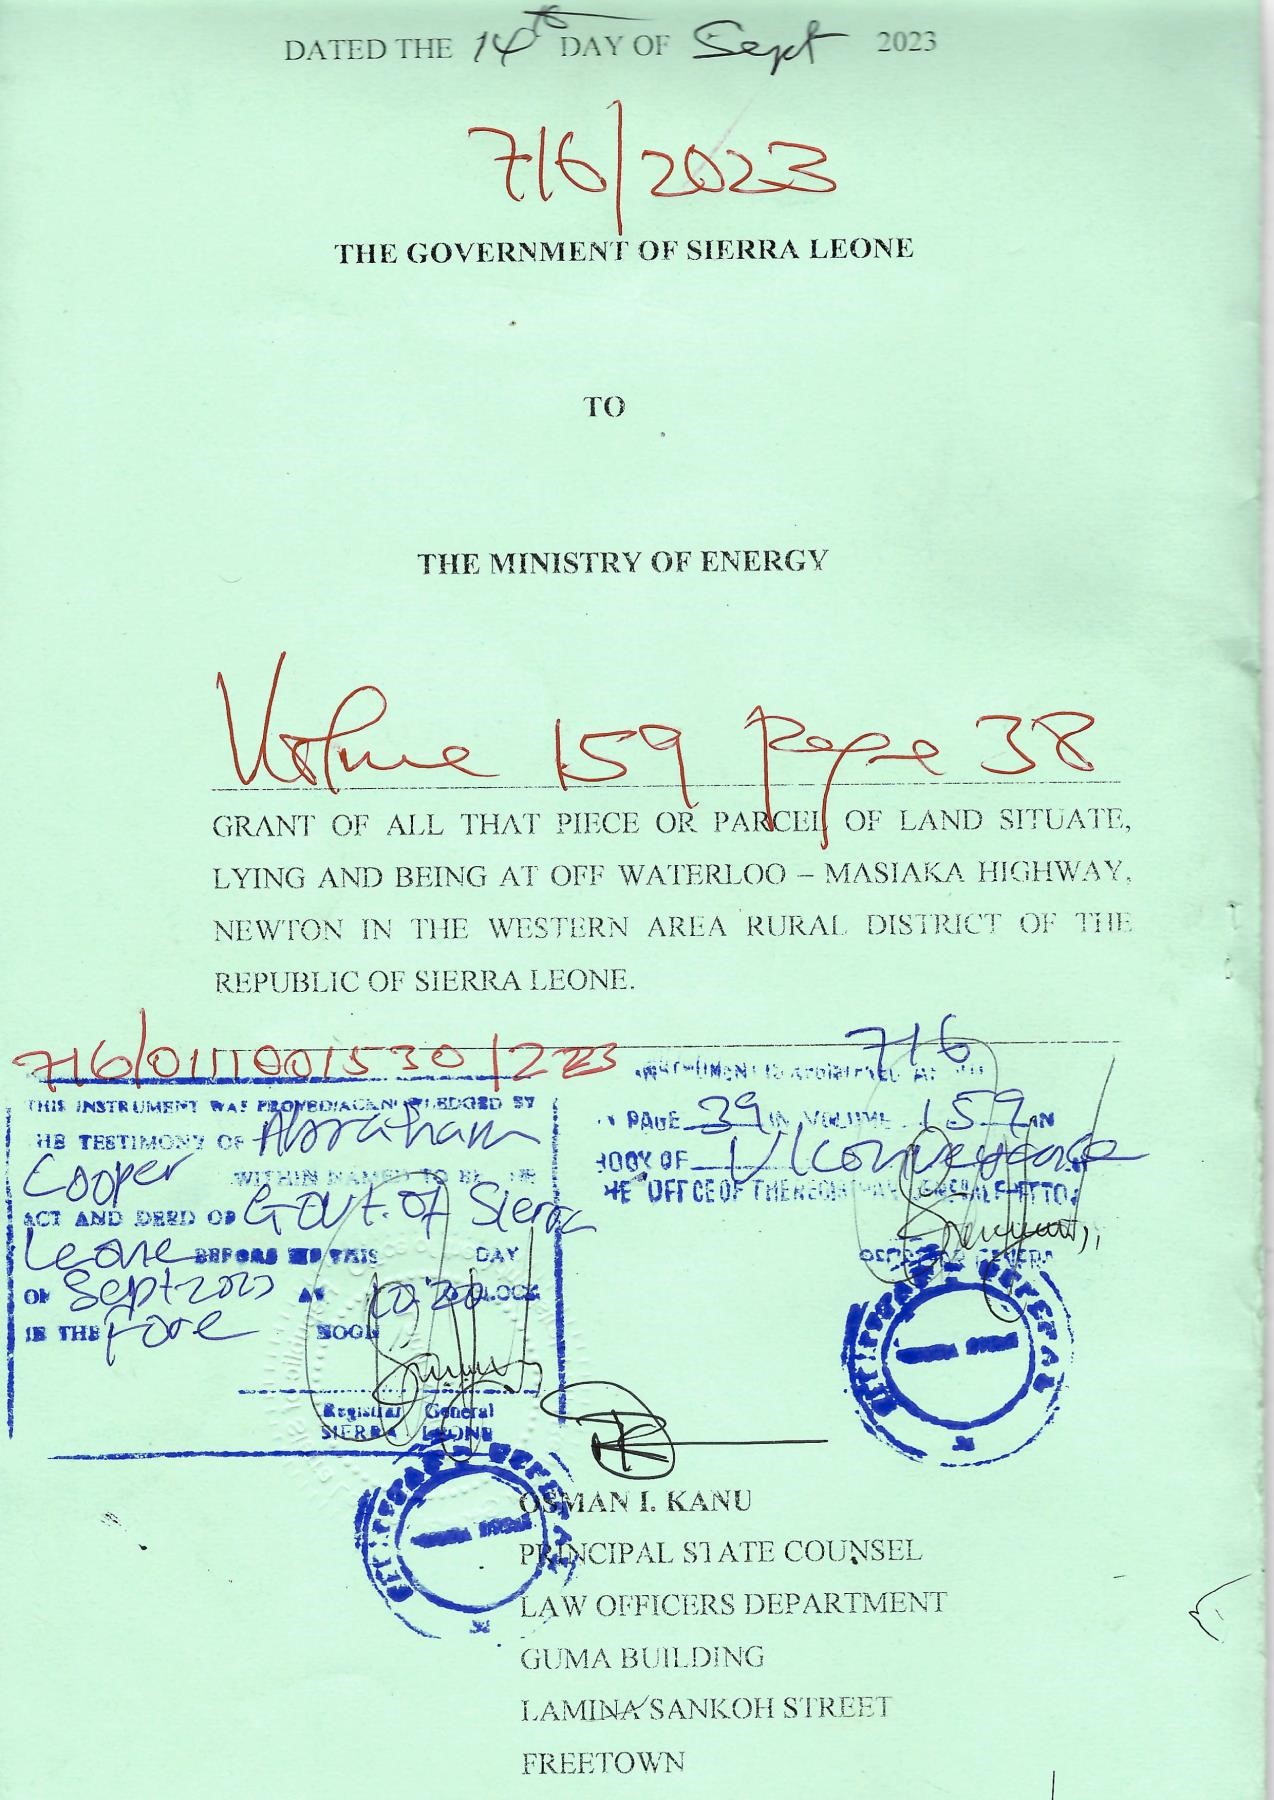 DATED THE 14th DAY OF Sept 2023
716/2023
THE GOVERNMENT OF SIERRA LEONE
TO
THE MINISTRY OF ENERGY
Volume 159 page 38
GRANT OF ALL THAT PIECE OR PARCEL OF LAND SITUATE,
LYING AND BEING AT OFF WATERLOO – MASIAKA HIGHWAY,
NEWTON IN THE WESTERN AREA RURAL DISTRICT OF THE
REPUBLIC OF SIERRA LEONE.
THIS INSTRUMENT WAS PROVED/ACKNOWLEDGED BY
HE TESTIMONY OF Abraham
Cooper WITHIN NAMED TO BE
ACT AND DEED OF Govt. of Sierra
Leone BEFORE ME THIS DAY
OF Sept 2023 AT 10:20 CLOCK
IN THE Fore NOON
Registrar General
SIERRA LEONE
716
PAGE 39 IN VOLUME 159 IN
BOOK OF
OSMAN I. KANU
PRINCIPAL STATE COUNSEL
LAW OFFICERS DEPARTMENT
GUMA BUILDING
LAMINA SANKOH STREET
FREETOWN